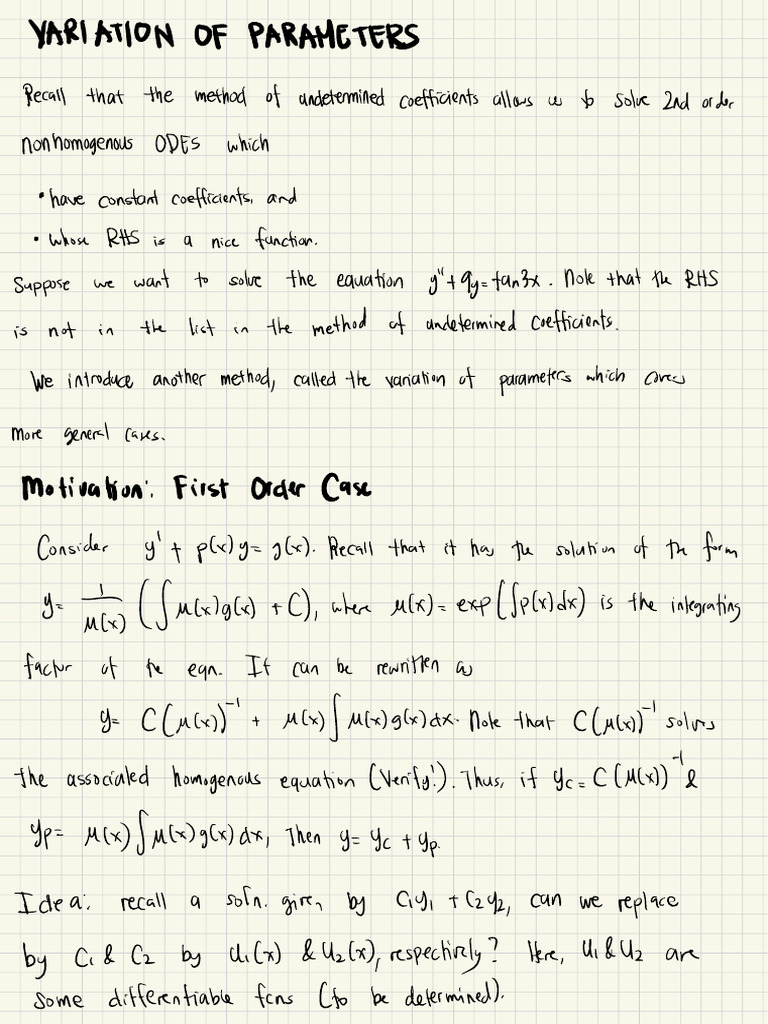 VARIATION OF PARAMETERS
Recall that the method of undetermined coefficients allows us to solve 2nd order
nonhomogenous ODES which
• have constant coefficients, and
• whose RHS is a nice function.
Suppose we want to solve the equation y'' + 9y = tan3x. Note that the RHS
is not in the list in the method of undetermined coefficients.
We introduce another method, called the variation of parameters which covers
more general cases.
Motivation: First Order Case
Consider y' + p(x)y = g(x). Recall that it has the solution of the form
y = 1/μ(x) (∫ μ(x)g(x) + C), where μ(x) = exp(∫p(x)dx) is the integrating
factor of the eqn. It can be rewritten as
y = C(μ(x))⁻¹ + μ(x)∫ μ(x)g(x)dx. Note that C(μ(x))⁻¹ solves
the associated homogenous equation (Verify!). Thus, if yc = C(μ(x))⁻¹ &
yp = μ(x)∫μ(x)g(x)dx, Then y = yc + yp.
Idea: recall a soln. given by C₁y₁ + C₂y₂, can we replace
by C₁ & C₂ by u₁(x) & u₂(x), respectively? Here, u₁ & u₂ are
some differentiable fcns (to be determined).